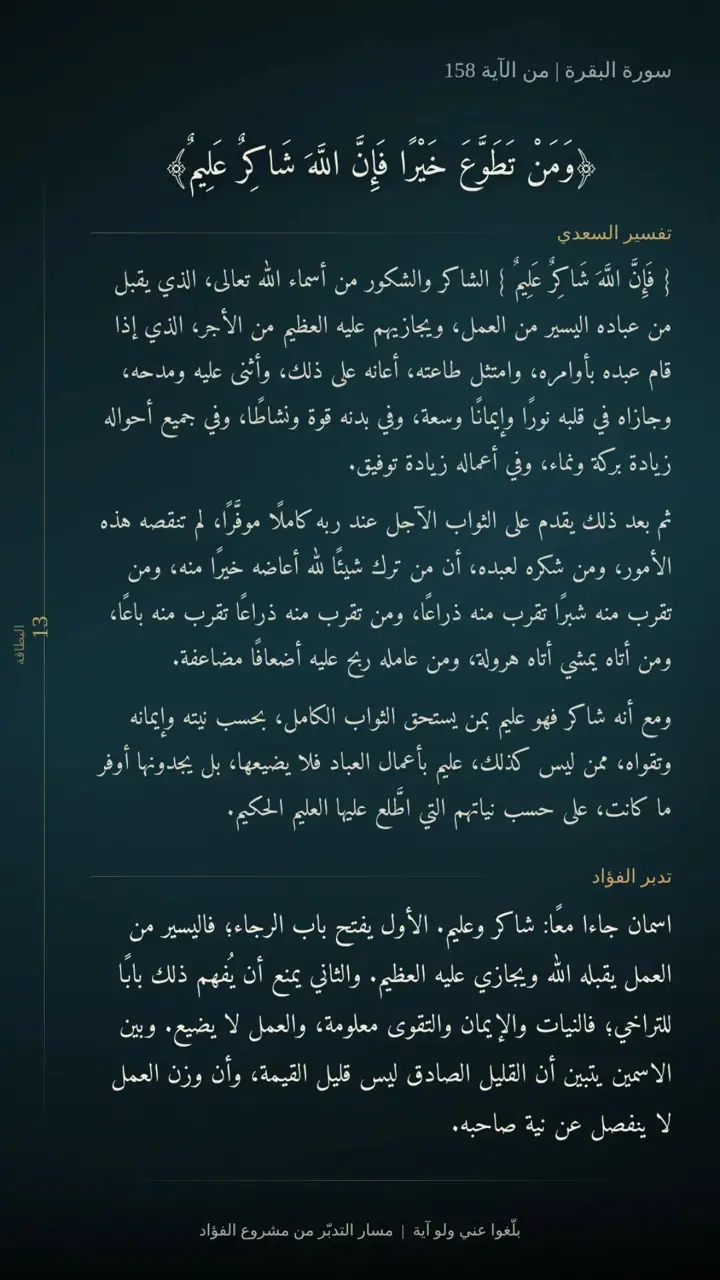 سورة البقرة | من الآية 158
﴿وَمَنْ تَطَوَّعَ خَيْرًا فَإِنَّ اللَّهَ شَاكِرٌ عَلِيمٌ﴾
تفسير السعدي
{ فَإِنَّ اللَّهَ شَاكِرٌ عَلِيمٌ } الشاكر والشكور من أسماء الله تعالى، الذي يقبل
من عباده اليسير من العمل، ويجازيهم عليه العظيم من الأجر، الذي إذا
قام عبده بأوامره، وامتثل طاعته، أعانه على ذلك، وأثنى عليه ومدحه،
وجازاه في قلبه نورًا وإيمانًا وسعة، وفي بدنه قوة ونشاطًا، وفي جميع أحواله
زيادة بركة ونماء، وفي أعماله زيادة توفيق.
ثم بعد ذلك يقدم على الثواب الآجل عند ربه كاملًا موفَّرًا، لم تنقصه هذه
الأمور، ومن شكره لعبده، أن من ترك شيئًا لله أعاضه خيرًا منه، ومن
تقرب منه شبرًا تقرب منه ذراعًا، ومن تقرب منه ذراعًا تقرب منه باعًا،
ومن أتاه يمشي أتاه هرولة، ومن عامله ربح عليه أضعافًا مضاعفة.
ومع أنه شاكر فهو عليم بمن يستحق الثواب الكامل، بحسب نيته وإيمانه
وتقواه، ممن ليس كذلك، عليم بأعمال العباد فلا يضيعها، بل يجدونها أوفر
ما كانت، على حسب نياتهم التي اطَّلع عليها العليم الحكيم.
تدبر الفؤاد
اسمان جاءا معًا: شاكر وعليم. الأول يفتح باب الرجاء؛ فاليسير من
العمل يقبله الله ويجازي عليه العظيم. والثاني يمنع أن يُفهم ذلك بابًا
للتراخي؛ فالنيات والإيمان والتقوى معلومة، والعمل لا يضيع. وبين
الاسمين يتبين أن القليل الصادق ليس قليل القيمة، وأن وزن العمل
لا ينفصل عن نية صاحبه.
البطاقة
13
بلّغوا عني ولو آية | مسار التدبّر من مشروع الفؤاد